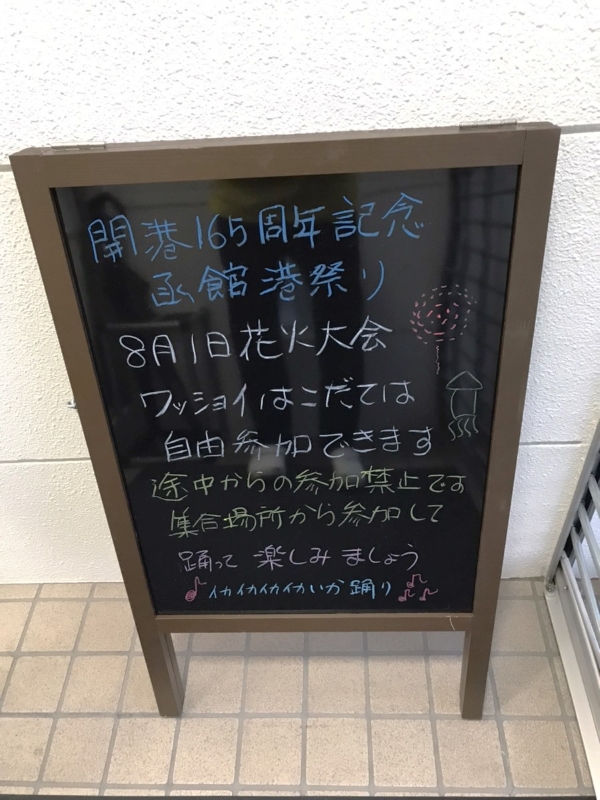 開港165周年記念
函館港祭り
8月1日花火大会
ワッショイはこだては
自由参加できます
途中からの参加禁止です
集合場所から参加して
踊って楽しみましょう
イカイカイカイカいか踊り